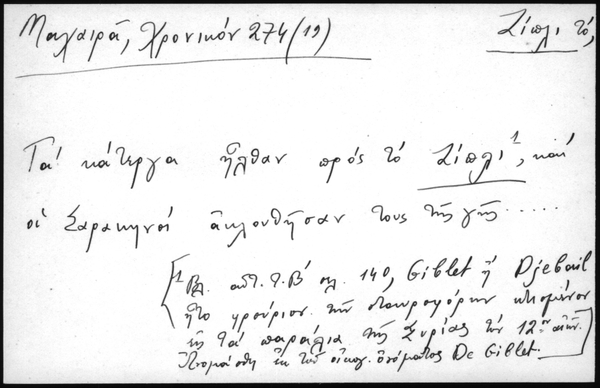 Μαχαιρᾶ, Χρονικόν 274 (19)
Ζίπλι τό,
Τα' κάτεργα ἦλθαν πρός τό Ζίπλι¹, καί
οἱ Σαρακηνοί ἀκλουθῆσαν τους τῆς γῆς.....
[¹ Βλ. αὐτ. τ. Β' σελ. 140, Giblet ἤ Djebail
ἦτο φρούριον τῶν σταυροφόρων κτισμένον
εἰς τά παράλια τῆς Συρίας τόν 12ον αἰῶν.
Ὠνομάσθη ἐκ τοῦ οἰκογ. ὀνόματος De Giblet.]